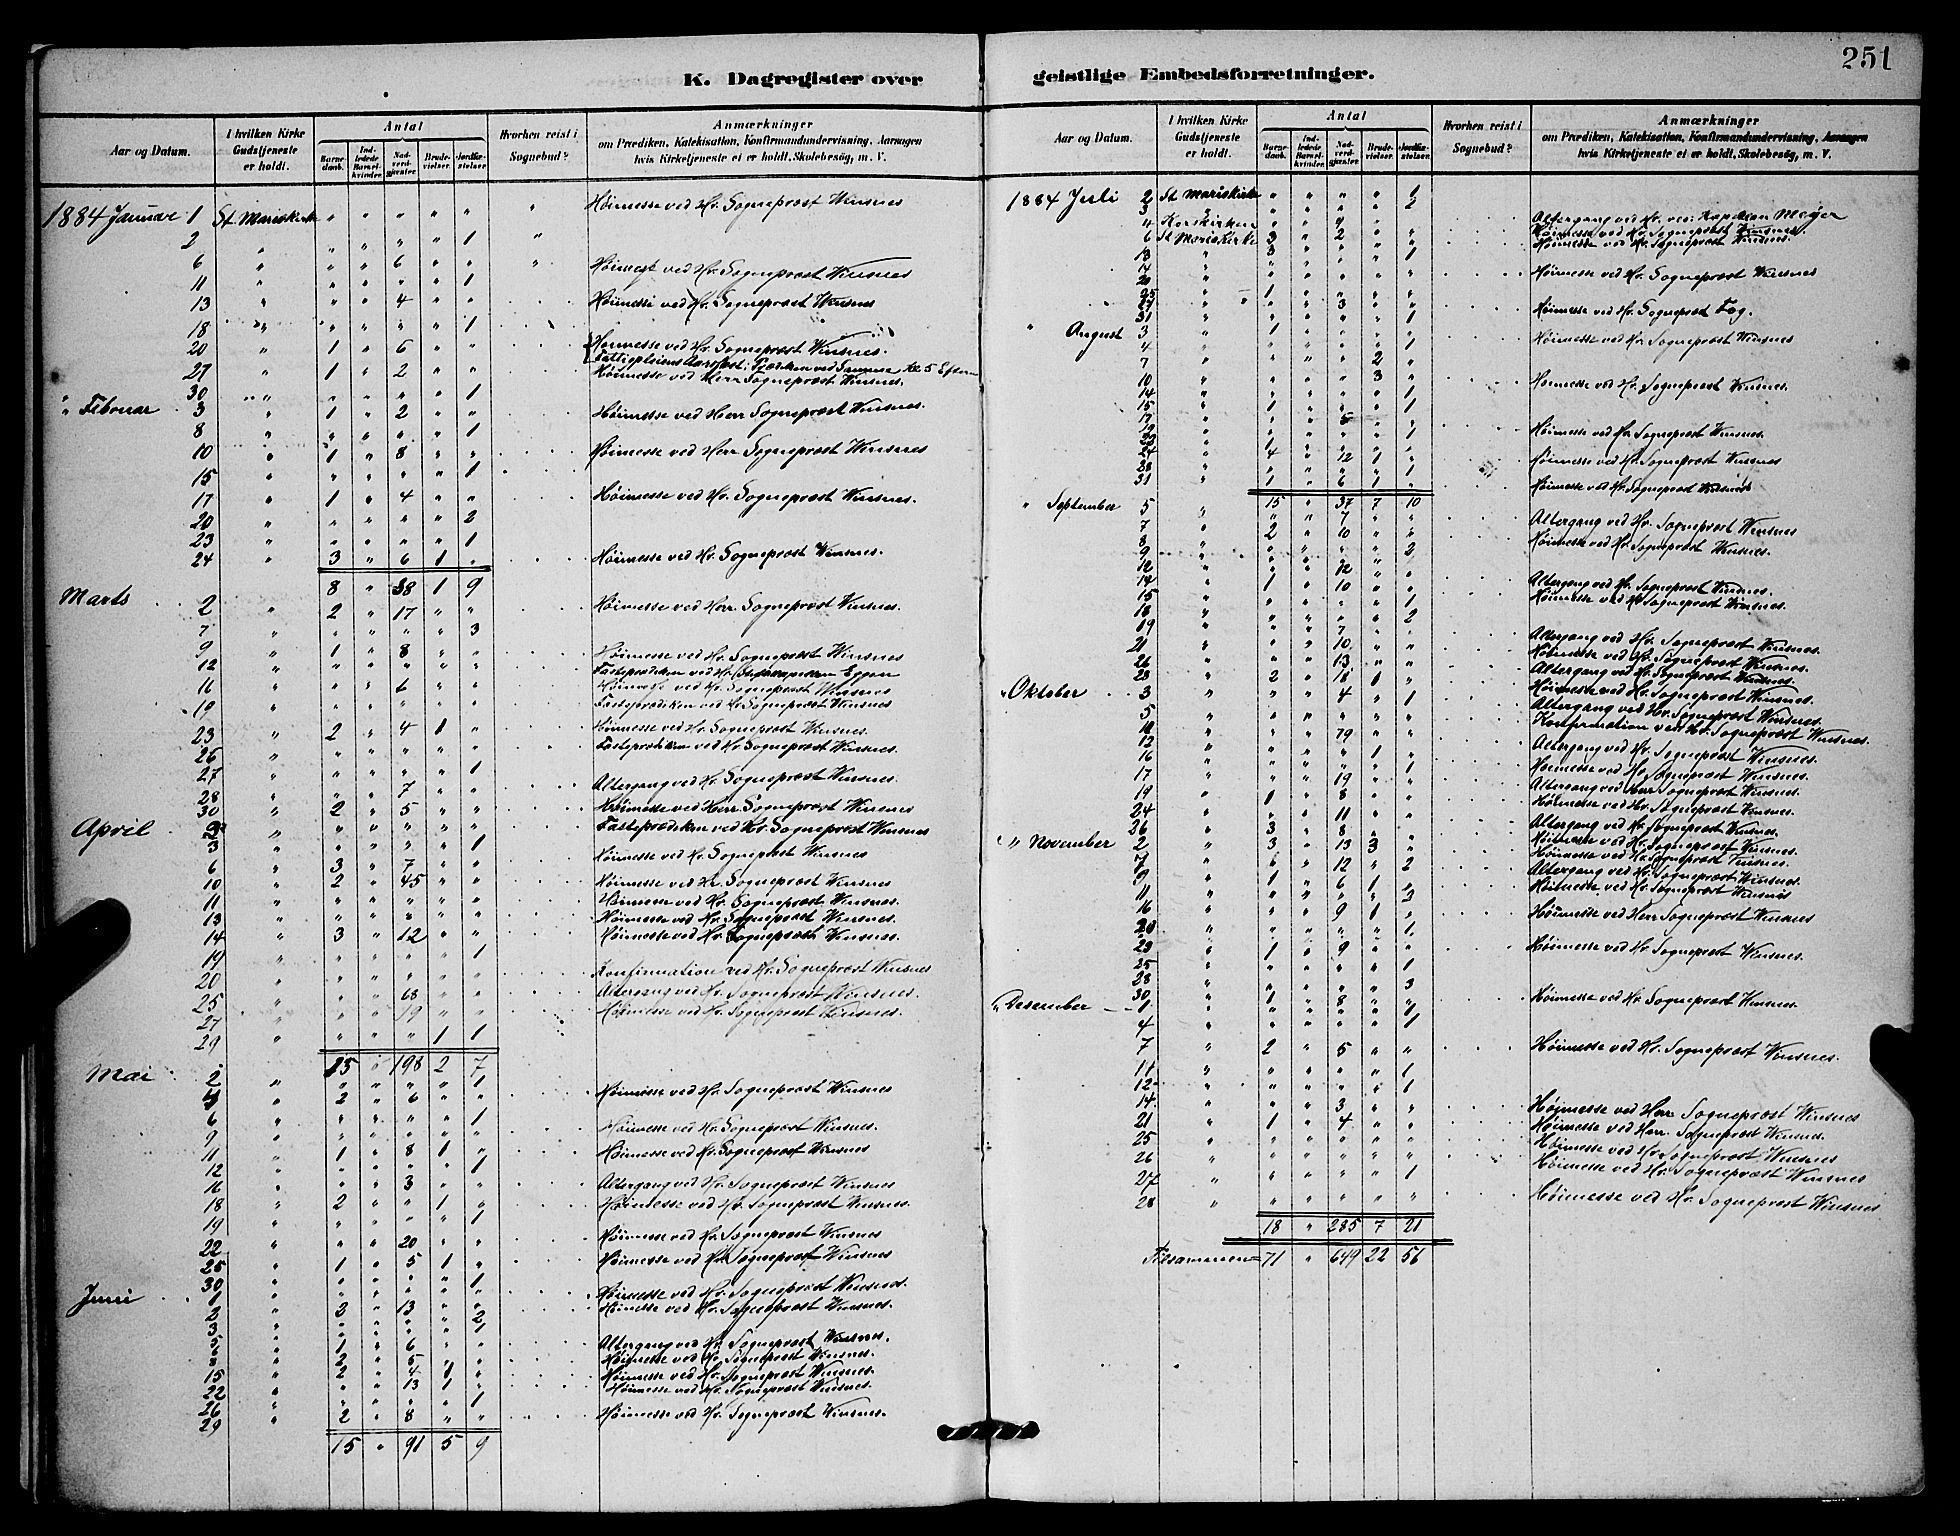 251
K. Dagregister over geistlige Embedsforretninger.
Aar og Datum. I hvilken Kirke Gudstjeneste er holdt. Antal Barnedaab. Indledede Barselkvinder. Nadverdgjæster. Brudevielser. Jordfæstelser. Hvorhen reist i Sognebud? Anmærkninger om Prædiken, Katekisation, Konfirmandundervisning, Aarsagen hvis Kirketjeneste ei er holdt, Skolebesøg, m. V.
1884 Januar 1 St Mariekirke " " " " " " Høimesse ved Hr. Sogneprest Winsnes
2 " " " " " 1 "
6 " " " 6 " " " Høimesse ved Hr. Sogneprest Winsnes
11 " " " " " 1
13 " " " 4 " " Høimesse ved Hr. Sogneprest Winsnes
18 " " " " " 1
20 " 1 " 6 " " Høimesse ved Hr. Sogneprest Winsnes.
27 " 1 " 2 " " Høimesse ved Herr Sogneprest Winsnes.
30 " " " " " 1
" Februar 3 " 1 " 2 " " Høimesse ved Herr Sogneprest Winsnes.
8 " " " " " 1
10 " 1 " 8 " " Høimesse ved Herr Sogneprest Winsnes
15 " " " " " 1
17 " 1 " 4 " " Høimesse ved Hr. Sogneprest Winsnes.
20 " " " " " 2
23 " " " " " 1
24 " 3 " 6 1 " Høimesse ved Hr. Sogneprest Winsnes.
8 " 38 1 9
Marts 2 " 2 " 17 " " Høimesse ved Herr Sogneprest Winsnes.
7 " " " " " 3
9 " 1 " 8 " " Høimesse ved Hr. Sogneprest Winsnes
12 " " " " " " Fasteprædiken ved Hr.
16 " " " 6 " " Høimesse ved Hr. Sogneprest Winsnes
19 " " " " " " Fasteprædiken ved Hr Sogneprest Winsnes
23 " 2 " 4 1 " Høimesse ved Hr. Sogneprest Winsnes.
26 " " " " " " Fasteprædiken ved Hr. Sogneprest Winsnes.
27 " " " " " 1
28 " " " 7 " " Altergang ved Hr. Sogneprest Winsnes.
30 " 2 " 5 " " Høimesse ved Herr Sogneprest Winsnes
April 2 " " " " " " Fasteprædiken ved Hr. Sogneprest Winsnes
3 " " " " " 1
6 " 3 " 7 " " Høimesse ved Hr. Sogneprest Winsnes
10 " 2 " 45 " " Høimesse ved Hr. Sogneprest Winsnes
11 " " " " " " Høimesse ved Hr. Sogneprest Winsnes.
13 " " " " " " Høimesse ved Hr. Sogneprest Winsnes.
14 " 3 " 12 " " Høimesse ved Hr. Sogneprest Winsnes.
19 " " " " " 1
20 " " " " " " Konfirmation ved Hr. Sogneprest Winsnes
25 " " " 68 " " Altergang ved Hr. Sogneprest Winsnes.
27 " " " 19 " " Høimesse ved Hr. Sogneprest Winsnes.
29 " " " " 1 1
15 " 198 2 7
Mai 2 " " " " " 1
4 " 2 " 6 " " Høimesse ved Hr. Sogneprest Winsnes
6 " " " " " 1
9 " " " " " " Høimesse ved Hr. Sogneprest Winsnes.
11 " 1 " 8 1 " Høimesse ved Hr. Sogneprest Winsnes
12 " " " " " 1
16 " " " 3 " " Altergang ved Hr. Sogneprest Winsnes
18 " 2 " " 1 " Høimesse ved Hr. Sogneprest Winsnes.
19 " " " " " 1
22 " " " 20 " " Høimesse ved Hr. Sogneprest Winsnes
25 " 1 " 5 1 " Høimesse ved Hr. Sogneprest Winsnes
30 " " " " " 1
Juni 1 " " " " " " Høimesse ved Hr. Sogneprest Winsnes.
2 " 2 " 13 " 2 Høimesse ved Hr. Sogneprest Winsnes.
3 " " " " " 1
5 " 1 " 6 " " Altergang ved Hr. Sogneprest Winsnes.
8 " 2 " 5 " " Høimesse ved Hr. Sogneprest Winsnes.
15 " 2 " 4 1 " Høimesse ved Hr. Sogneprest Winsnes.
22 " " " 13 1 " Høimesse ved Hr. Sogneprest Winsnes.
26 " " " " " 1
29 " 2 " 8 " " Høimesse ved Hr. Sogneprest Winsnes.
15 " 91 5 9
Aar og Datum. I hvilken Kirke Gudstjeneste er holdt. Antal Barnedaab. Indledede Barselkvinder. Nadverdgjæster. Brudevielser. Jordfæstelser. Hvorhen reist i Sognebud? Anmærkninger om Prædiken, Katekisation, Konfirmandundervisning, Aarsagen hvis Kirketjeneste ei er holdt, Skolebesøg, m. V.
1884 Juli 2 St Mariekirke " " " " 1
3 " " " " " 2
4 Korskirken Altergang ved Hr. res: Kapellan Meyer
6 St Mariekirke 3 " 2 Høimesse ved Hr. Sogneprest Winsnes
13 " 3 " " " 1 Høimesse ved Hr. Sogneprest Winsnes.
14
20 Høimesse ved Hr. Sogneprest Winsnes
25 " 1
27 " " " 3 Høimesse ved Hr. Sogneprest Fog.
31 " " " " " 1
" August 3 " 1 Høimesse ved Hr. Sogneprest Winsnes
4 " " " " " 1
7 " " " " 2
10 " " " " 3 " Høimesse ved Hr. Sogneprest Winsnes.
14 " " " " " 1
15 " 1 " " " 1
17 Høimesse ved Hr. Sogneprest Winsnes.
19 " " " " " 1
24 " 4 " 12 1 " Høimesse ved Hr. Sogneprest Winsnes
28 " " " " " 1
31 " 1 " 6 1 " Høimesse ved Hr. Sogneprest Winsnes
15 " 37 7 10
" September 5 " " " 7 " " Altergang ved Hr. Sogneprest Winsnes
7 " 2 " 10 " " Høimesse ved Hr. Sogneprest Winsnes.
8
9 " " " " " 2
12 " " " 12 " " Altergang ved Hr. Sogneprest Winsnes.
14 " 1 " 10 " " Høimesse ved Hr Sogneprest Winsnes.
15 " " " " " 1
18 " " " " " 2
19 " " " 7 " " Altergang ved Hr. Sogneprest Winsnes.
21 " " " 10 " " Høimesse ved Hr. Sogneprest Winsnes.
26 " " " 13 " " Altergang ved Hr. Sogneprest Winsnes.
28 " 2 " 18 1 " Høimesse ved Hr. Sogneprest Winsnes.
" Oktober 3 " " " 4 " 1 Altergang ved Hr. Sogneprest Winsnes.
5 " " " " " " Konfirmation ved Hr. Sogneprest Winsnes.
10 " " " 79 " " Altergang ved Hr. Sogneprest Winsnes.
12 Høimesse ved Hr. Sogneprest Winsnes.
16 " " " " " 1
17 " " " 19 " " Altergang ved Herr Sogneprest Winsnes.
19 " 1 " 8 " " Høimesse ved Hr. Sogneprest Winsnes.
24 " " " 11 " " Altergang ved Hr. Sogneprest Winsnes.
26 " 3 " 8 " " Høimesse ved Hr. Sogneprest Winsnes.
" November 2 " 3 " 13 3 " Høimesse ved Hr. Sogneprest Winsnes.
7 " " " 12 " 2 Altergang ved Hr. Sogneprest Winsnes.
9 " 1 " 6 1 " Høimesse ved Hr. Sogneprest Winsnes
11 " " " " " 2
16 " " " 9 1 " Høimesse ved Herr Sogneprest Winsnes
20 " " " " " 1
23 " 1 " 9 " " Høimesse ved Hr. Sogneprest Winsnes.
25 " " " " " 1
28 " " " " " 3
30 " 1 " 8 " " Høimesse ved Hr. Sogneprest Winsnes.
" Desember 1 " " " " " 1
4 " " " " " 1
7 " 2 " 5 " " Høimesse ved Hr. Sogneprest Winsnes.
11 " " " " " 1
12 " " " " " 1
14 " " " 3 " " Højmesse ved Herr Sogneprest Winsnes
21 " 1 " 4 " " Høimesse ved Herr Sogneprest Winsnes.
25 " " " " " " Høimesse ved Hr Sogneprest Winsnes
26 " " " " " " Høimesse ved Hr. Sogneprest Winsnes
27 " " " " " 1
28 " " " " " " Høimesse ved Hr. Sogneprest Winsnes
18 " 285 7 21
Tilsammen = 71 " 649 22 56